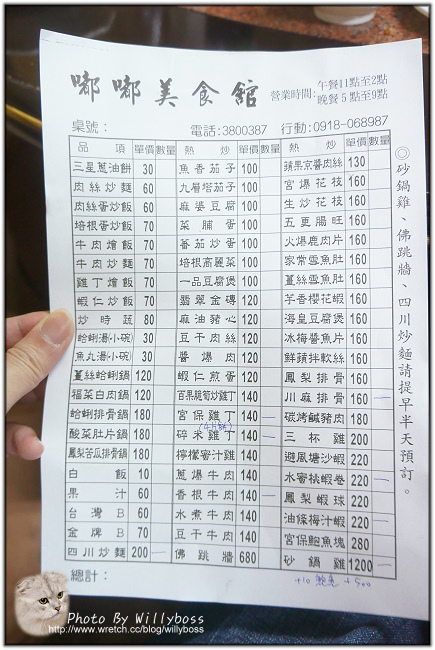 嘟嘟美食館
營業時間: 午餐11點至2點
晚餐 5 點至9點
桌號: 電話:3800387 行動:0918-068987
品項 單價 數量 熱炒 單價 數量 熱炒 單價 數量
三星蔥油餅 30 魚香茄子 100 蘋果京醬肉絲 130
肉絲炒麵 60 九層塔茄子 100 宮爆花枝 160
肉絲蛋炒飯 60 麻婆豆腐 100 生炒花枝 160
培根蛋炒飯 70 菜脯蛋 100 五更腸旺 160
牛肉燴飯 70 蕃茄炒蛋 100 火爆鹿肉片 160
牛肉炒麵 70 培根高麗菜 100 家常雪魚肚 160
雞丁燴飯 70 一品豆腐煲 100 薑絲雪魚肚 160
蝦仁炒飯 70 翡翠金磚 120 芋香櫻花蝦 160
炒時蔬 80 麻油豬心 120 海皇豆腐煲 160
蛤蜊湯(小碗) 30 豆干肉絲 120 冰梅醬魚片 160
魚丸湯(小碗) 30 醬爆肉 120 鮮蘋拌軟絲 160
薑絲蛤蜊鍋 120 蝦仁煎蛋 120 鳳梨排骨 160
福菜白肉鍋 120 百果蘆筍炒雞丁 140 川麻排骨 160 一
蛤蜊排骨鍋 180 宮保雞丁 140 一 碳烤鹹豬肉 180
酸菜肚片鍋 180 碎米雞丁 140 一 三杯雞 200
鳳梨苦瓜排骨鍋 180 檸檬蜜汁雞 140 避風塘沙蝦 220
白飯 10 蔥爆牛肉 140 水蜜桃蝦卷 220 一
果汁 60 香根牛肉 140 一 鳳梨蝦球 220
台灣B 60 水煮牛肉 140 油條梅汁蝦 220 一
金牌B 70 豆干牛肉 140 宮保鮑魚塊 280
四川炒麵 200 一 佛跳牆 680 砂鍋雞 1200 一
總計:
+500
◎砂鍋雞、佛跳牆、四川炒麵請提早半天預訂。
Photo By Willyboss
http://www.wretch.cc/blog/willyboss